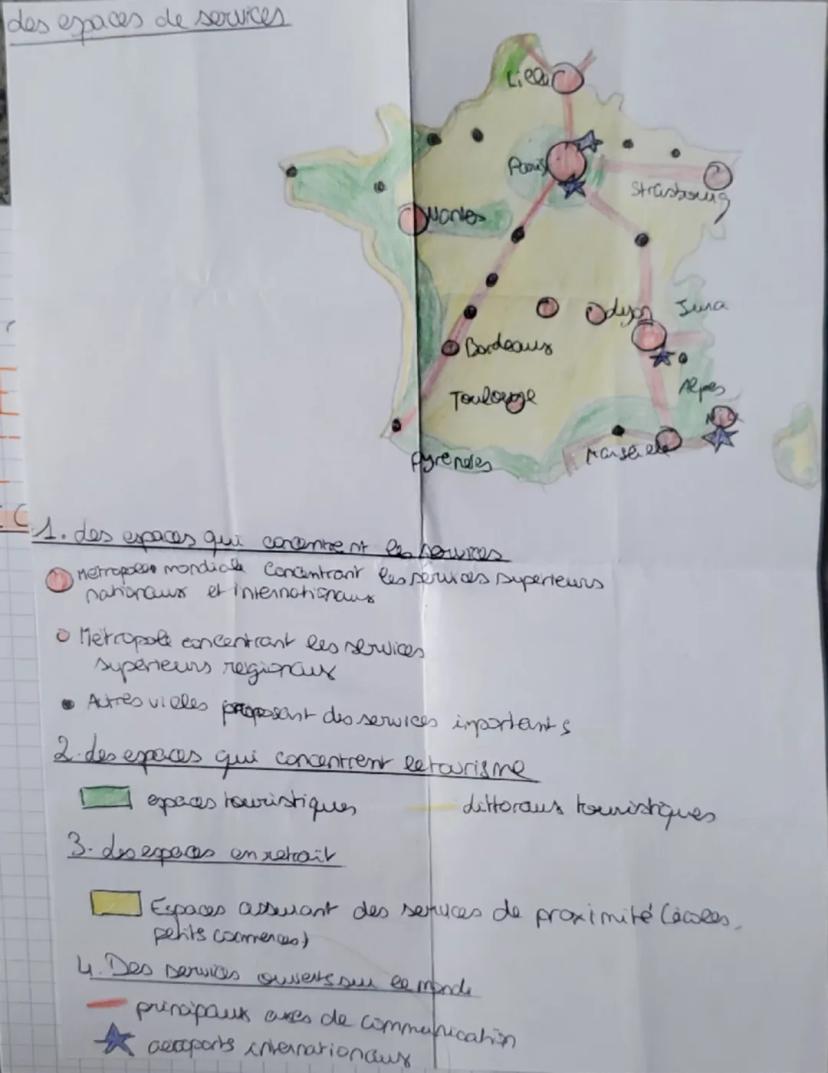 des espaces de services
Lille
Paris
Strasbourg
Nantes
Lyon
Jura
Bordeaux
Alpes
Toulouse
Pyrenees
Marseille
1. des espaces qui concentrent les services
Metropoles mondiale concentrant les services superieurs
nationaux et internationaux
Métropole concentrant les services
superieurs regionaux
Autres villes proposant des services importants
2. des espaces qui concentrent le tourisme
espaces touristiques
littoraux touristiques
3. des espaces en retrait
Espaces assurant des services de proximité (écoles,
petits commerces)
4. Des services ouverts sur le monde
principaux axes de communication
aeroports internationaux